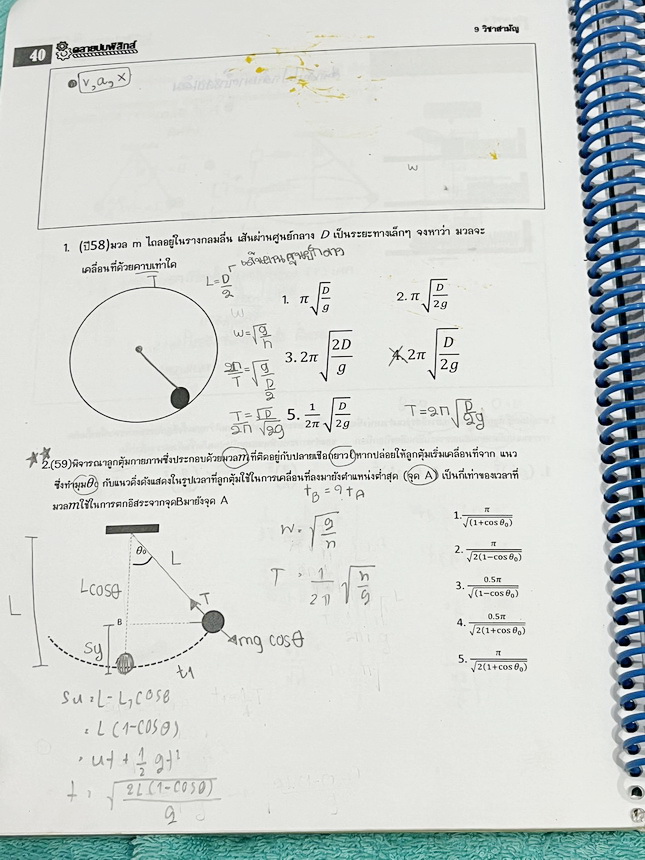 40
ตลาดปมฟิสิกส์
9 วิชาสามัญ
v, a, x
w
1. (ปี58)มวล m ไถลอยู่ในรางกลมลื่น เส้นผ่านศูนย์กลาง D เป็นระยะทางเล็กๆ จงหาว่า มวลจะ
เคลื่อนที่ด้วยคาบเท่าใด
T
L = D/2
w
w = √(g/r)
2π/T = √(g/(D/2))
T/2π = √D/√2g
1. π√(D/g)
2. π√(D/2g)
3. 2π√(2D/g)
4. 2π√(D/2g)
5. 1/2π √(D/2g)
T = 2π√(D/2g)
2.(59)พิจารณาลูกตุ้มกายภาพซึ่งประกอบด้วยมวลm ที่ติดอยู่กับปลายเชือกยาวℓ หากปล่อยให้ลูกตุ้มเริ่มเคลื่อนที่จาก แนว
ซึ่งทำมุมθ₀ กับแนวดิ่งดังแสดงในรูปเวลาที่ลูกตุ้มใช้ในการเคลื่อนที่ลงมายังตำแหน่งต่ำสุด (จุด A) เป็นกี่เท่าของเวลาที่
มวลmใช้ในการตกอิสระจากจุดBมายังจุด A
t_B = ? t_A
w = √(g/r)
T = 1/2π √(r/g)
1. π/√(1+cos θ₀)
2. π/√2(1−cos θ₀)
3. 0.5π/√(1−cos θ₀)
4. 0.5π/√2(1+cos θ₀)
5. π/√2(1+cos θ₀)
θ₀
L
Lcosθ
L
T
B
mg cosθ
Sy
t1
Su = L - L, cosθ
= L (1-cosθ)
= ut + 1/2 gt²
t = √(2L(1-cosθ)/g)